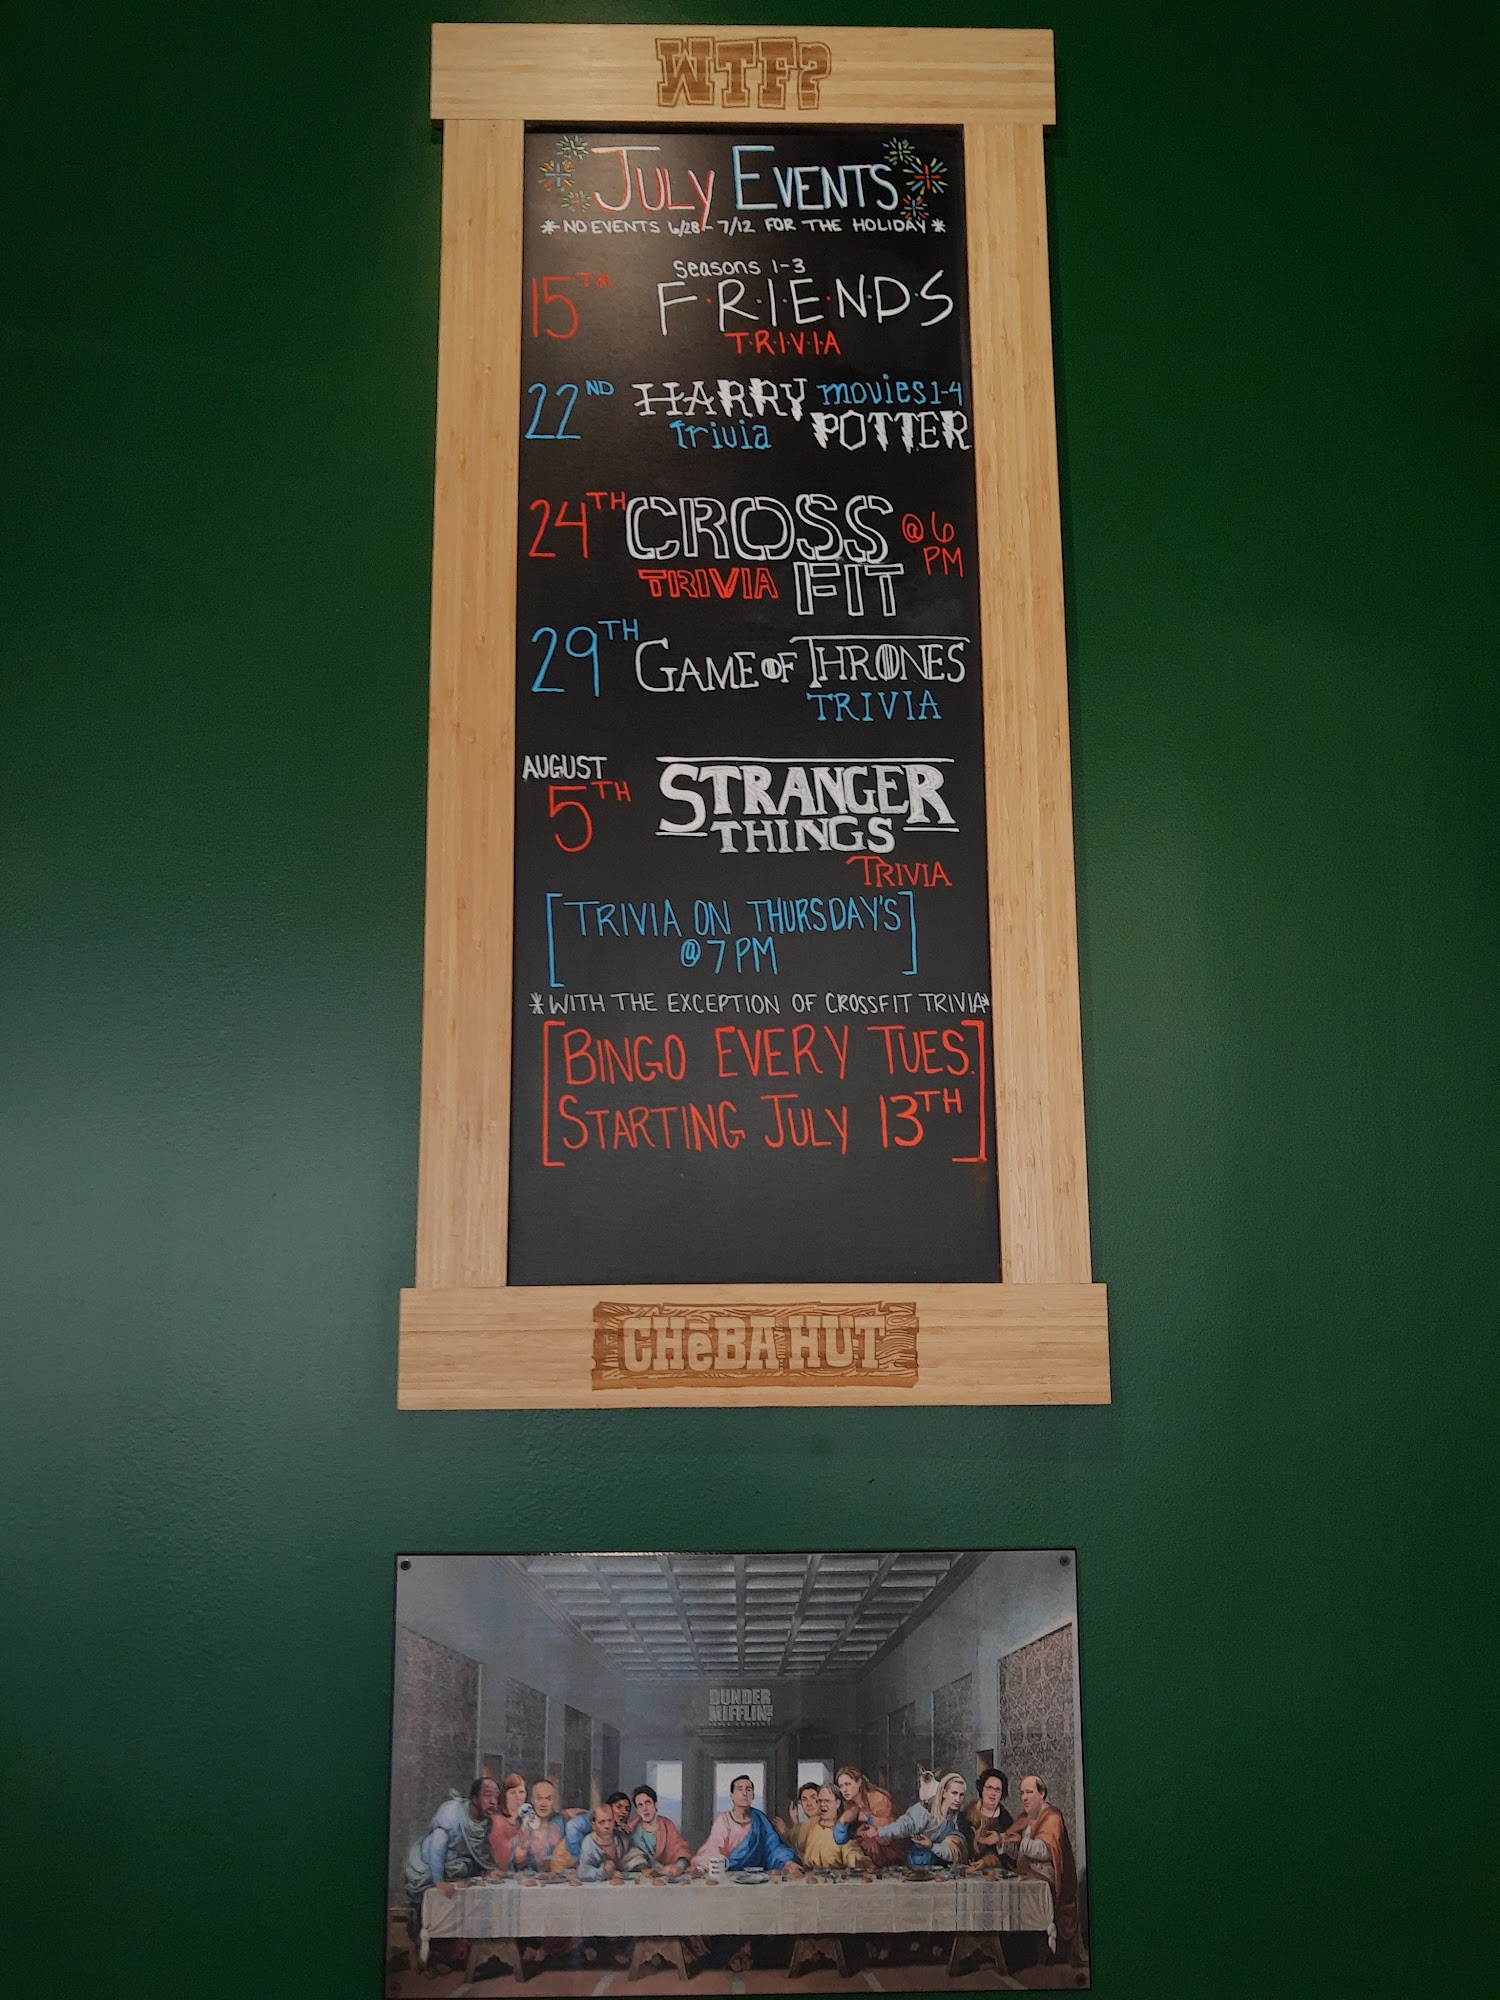 WTF?
JULY EVENTS
*NO EVENTS 6/28-7/12 FOR THE HOLIDAY*
15TH seasons 1-3
F·R·I·E·N·D·S
T·R·I·V·I·A
22ND HARRY movies 1-4
Trivia POTTER
24TH CROSS @ 6
TRIVIA FIT PM
29TH GAME OF THRONES
TRIVIA
AUGUST
5TH STRANGER
THINGS
TRIVIA
[TRIVIA ON THURSDAY'S
@ 7 PM]
*WITH THE EXCEPTION OF CROSSFIT TRIVIA*
[BINGO EVERY TUES.
STARTING JULY 13TH]
CHeBA HUT
DUNDER
MIFFLIN